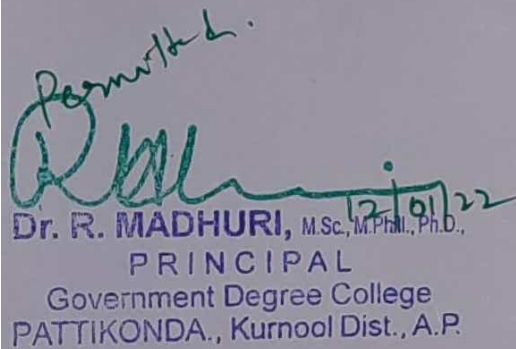 Permitted.
12/01/22
Dr. R. MADHURI, M.Sc., M.Phil., Ph.D.,
PRINCIPAL
Government Degree College
PATTIKONDA., Kurnool Dist., A.P.